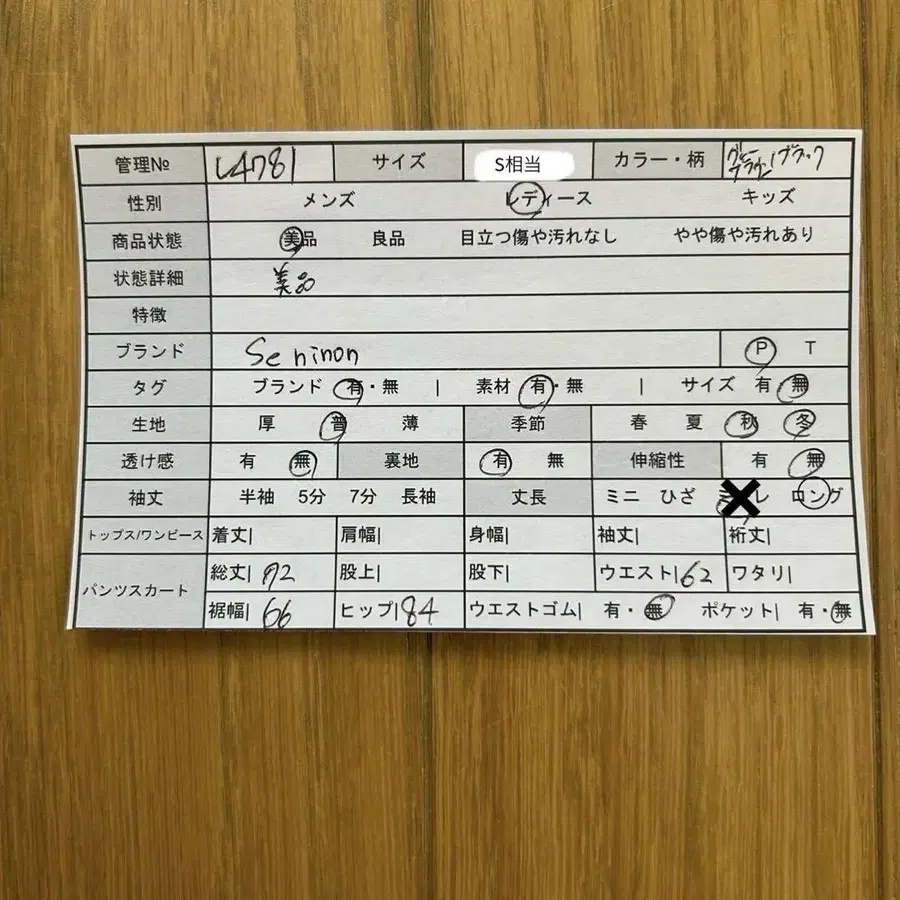 管理№ L4781 サイズ S相当 カラー・柄 グレー ブラウン/ブラック
性別 メンズ レディース キッズ
商品状態 美品 良品 目立つ傷や汚れなし やや傷や汚れあり
状態詳細 美品
特徴
ブランド Se ninon P T
タグ ブランド 有・無 | 素材 有・無 | サイズ 有・無
生地 厚 普 薄 季節 春 夏 秋 冬
透け感 有 無 裏地 有 無 伸縮性 有 無
袖丈 半袖 5分 7分 長袖 丈長 ミニ ひざ ロング
トップス/ワンピース 着丈| 肩幅| 身幅| 袖丈| 裄丈|
パンツスカート 総丈| 72 股上| 股下| ウエスト| 62 ワタリ|
裾幅| 66 ヒップ| 84 ウエストゴム| 有・無 ポケット| 有・無